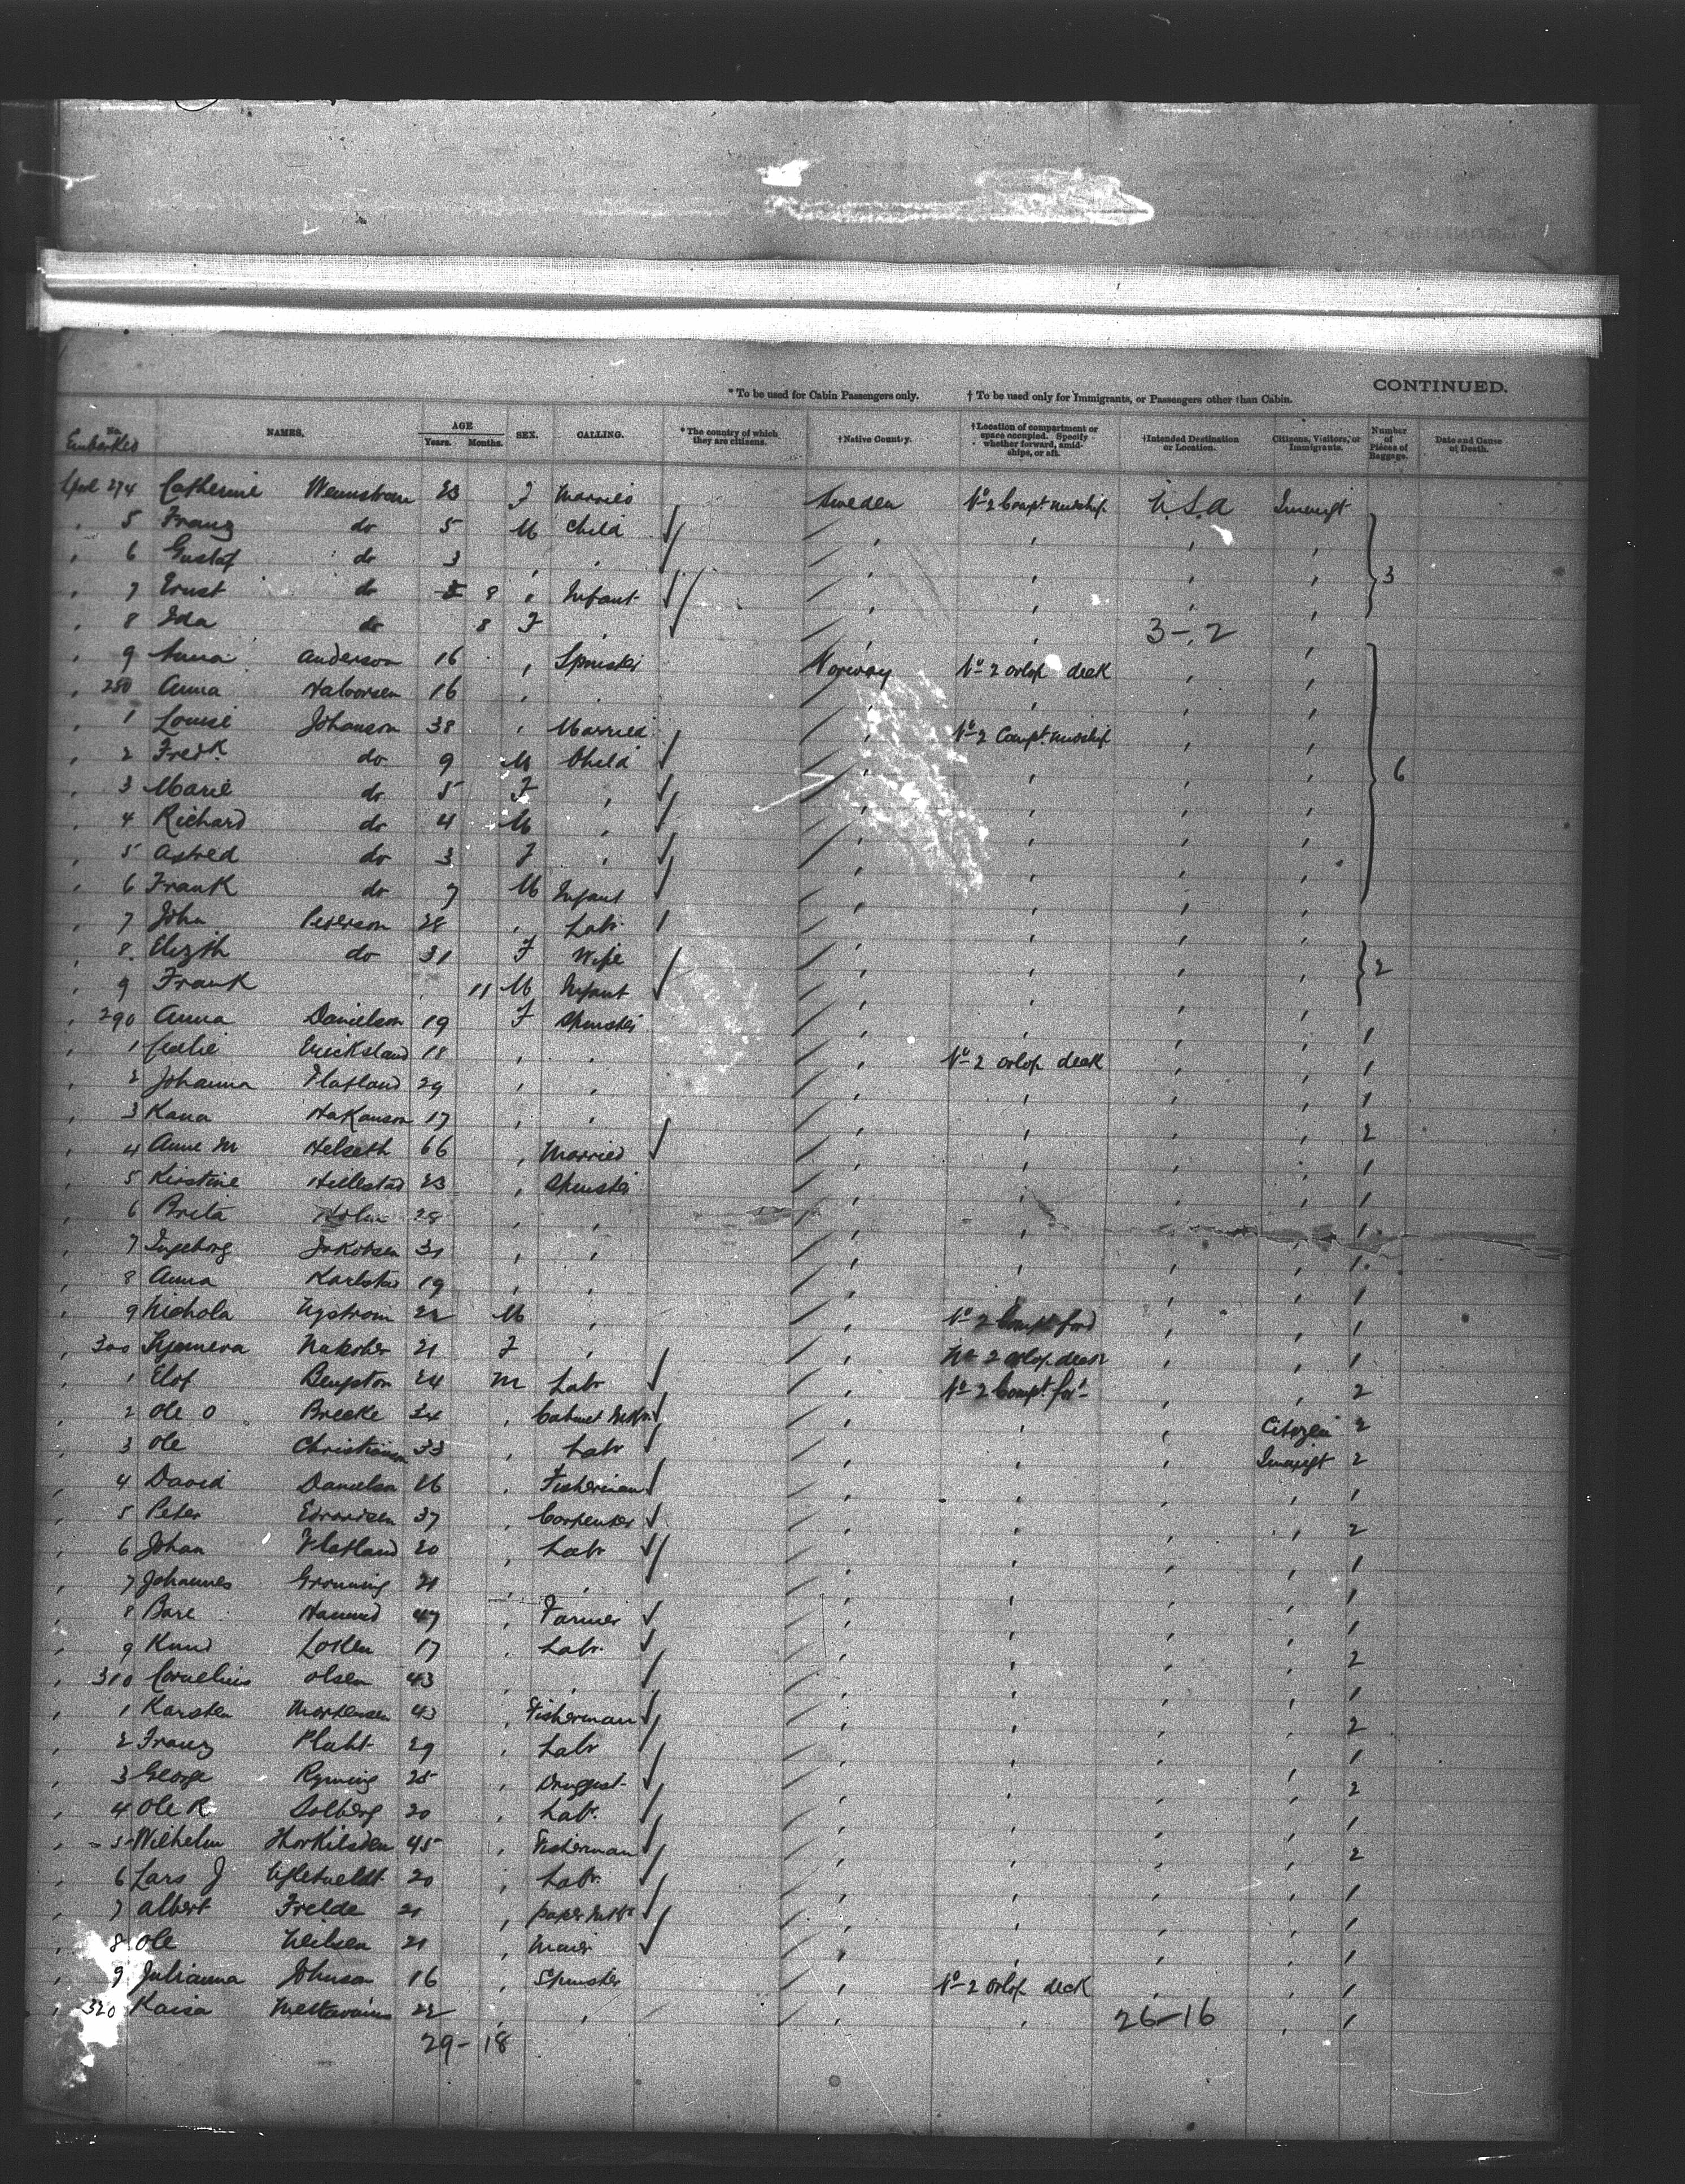 CONTINUED.
* To be used for Cabin Passengers only. † To be used only for Immigrants, or Passengers other than Cabin.
No. Embarked NAMES. AGE Years. Months. SEX. CALLING. * The country of which they are citizens. † Native Country. † Location of compartment or space occupied. Specify whether forward, amidships, or aft. † Intended Destination or Location. Citizens, Visitors, or Immigrants. Number of Pieces of Baggage. Date and Cause of Death.
274 Catherine 23 F Married Sweden No 2 Compt midship U.S.A Immigt
" 5 Franz do 5 M Child " " " "
" 6 Gustaf do 3 " " " " " " 3
" 7 Ernst do 8 " Infant " " " "
" 8 Ida do 8 F " " " 3-2
" 9 Anna Anderson 16 " Spinster Norway No 2 orlop deck " "
" 280 Anna Halvorsen 16 " " " " " "
" 1 Louise Johanson 38 " Married " No 2 Compt. midship " "
" 2 Fredk do 9 M Child " " " " 6
" 3 Marie do 5 F " " " " "
" 4 Richard do 4 M " " " " "
" 5 Astred do 3 F " " " " "
" 6 Frank do 7 M Infant " " " "
" 7 John Peterson 28 " Labr " " " "
" 8 Elizth do 31 F Wife " " " " 2
" 9 Frank 11 M Infant " " " "
" 290 Anna Danielson 19 F Spinster " " " " 1
" 1 Ericksland 18 " " " No 2 orlop deck " " 1
" 2 Johanna Flatland 29 " " " " " " 1
" 3 Kana Hakanson 17 " " " " " " 2
" 4 Anne M Helseth 66 " Married " " " " 1
" 5 Kirstine Hellestad 23 " Spinster " " " " 1
" 6 Brita Holm 28 " " " " " " 1
" 7 Ingeborg Jakobsen 31 " " " " " " 1
" 8 Anna Karlstad 19 " " " " " " 1
" 9 Nichola Nystrom 22 M " " No 2 Compt ford " " 1
" 300 21 F " " No 2 orlop deck " " 1
" 1 Elof Bengston 24 M Labr " No 2 Compt. for'd " " 2
" 2 Ole O Brecke 34 " Cabinet Mkr " " " Citizen 2
" 3 Ole Christiansen 33 " Labr " " " Immigt 2
" 4 David Danielsen 16 " Fisherman " " " " 1
" 5 Peter Edvardsen 37 " Carpenter " " " " 2
" 6 Johan Flatland 20 " Labr " " " " 1
" 7 Johannes Gronning 21 " " " " " " 1
" 8 47 " Farmer " " " " 1
" 9 Knud 17 " Labr " " " " 2
" 310 Cornelius Olsen 43 " " " " " " 1
" 1 Karsten Mortensen 43 " Fisherman " " " " 2
" 2 Franz Plaht 29 " Labr " " " " 1
" 3 George Ryning 25 " Druggist " " " " 2
" 4 Ole R Solberg 20 " Labr. " " " " 1
" 5 Wilhelm Thorkilsden 45 " Fisherman " " " " 2
" 6 Lars J 20 " Labr. " " " " 1
" 7 Albert Frelde 21 " paper Mkr " " " " 1
" 8 Ole Neilsen 21 " " " " " 1
" 9 Julianna Johnson 16 " Spinster " No 2 orlop deck " " 1
" 320 Kaisa 22 " " " " 26-16 " 1
29-18